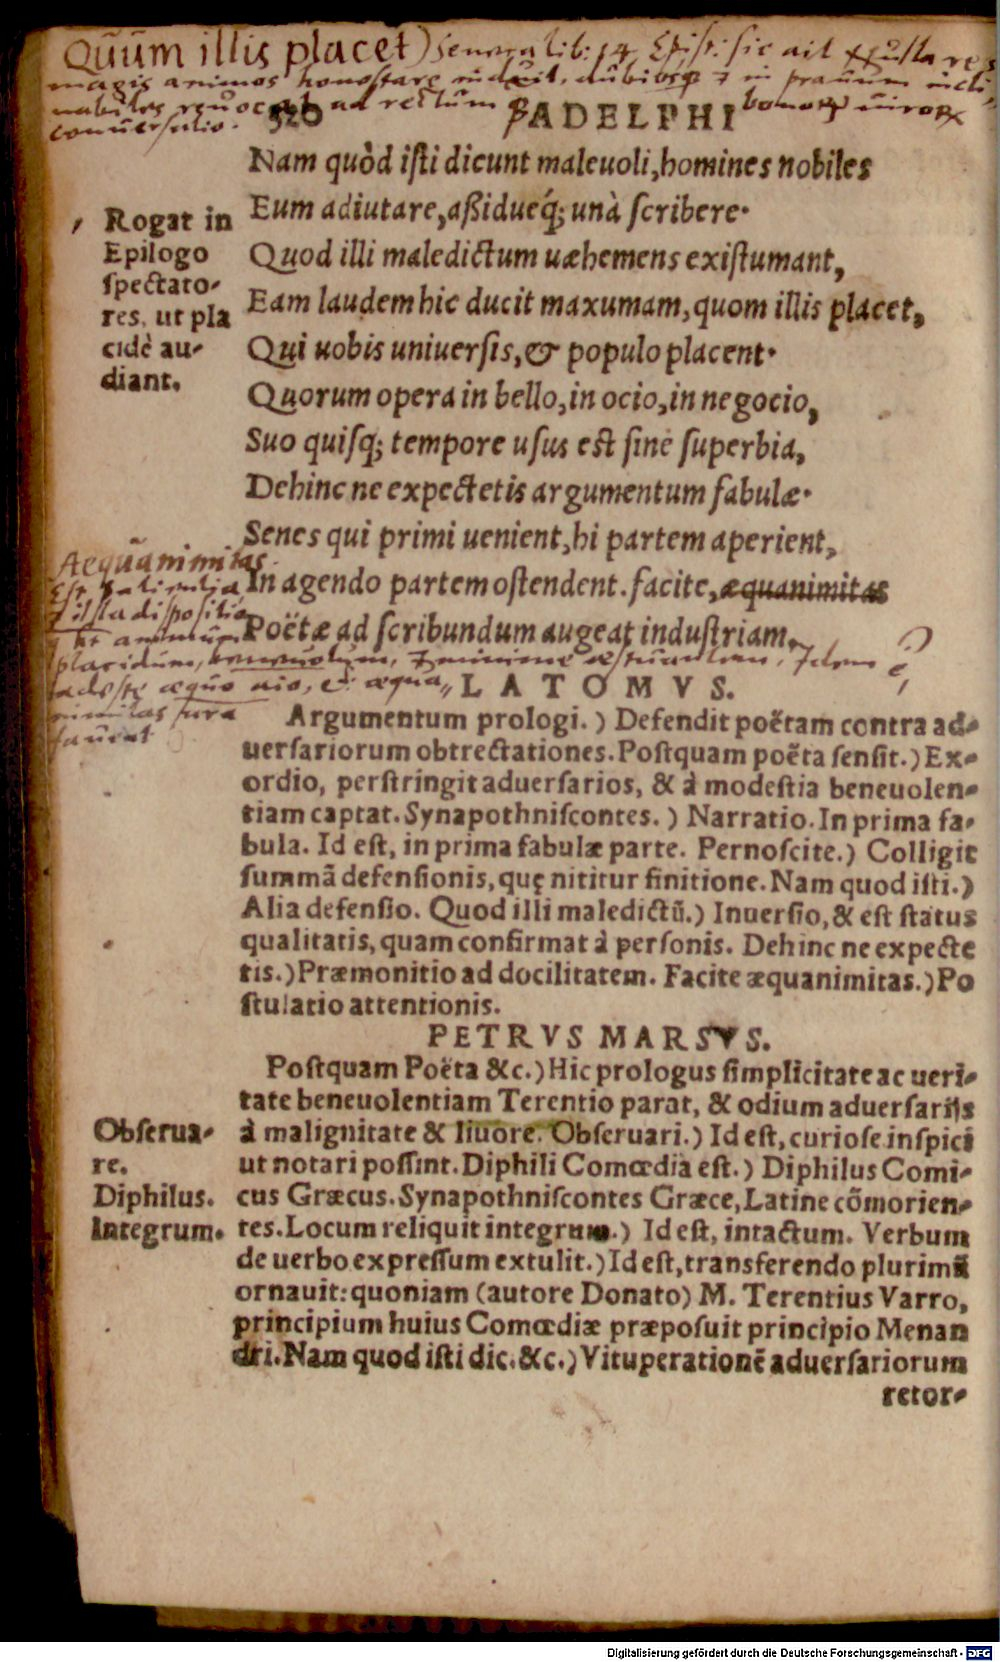 Quum illis placet) Seneca lib: 14 Epist: sic ait
magis animos honestare
ad rectum bonorum uirorum
conuersatio.
520 ADELPHI
Nam quòd isti dicunt maleuoli, homines nobiles
Eum adiutare, aßidueq́; unà scribere.
Quod illi maledictum uæhemens existumant,
Eam laudem hic ducit maxumam, quom illis placet,
Qui uobis uniuersis, & populo placent.
Quorum opera in bello, in ocio, in negocio,
Suo quisq; tempore usus est sine superbia,
Dehinc ne expectetis argumentum fabulæ.
Senes qui primi uenient, hi partem aperient,
In agendo partem ostendent. facite, æquanimitas
Poëtæ ad scribundum augeat industriam.
Rogat in
Epilogo
spectato-
res, ut pla
cidè au-
diant.
Aequanimitas
animum
placidum, beneuolum,
adeste æquo
nimitas
LATOMVS.
Argumentum prologi.) Defendit poëtam contra ad-
uersariorum obtrectationes. Postquam poëta sensit.) Ex-
ordio, perstringit aduersarios, & à modestia beneuolen-
tiam captat. Synapothniscontes.) Narratio. In prima fa-
bula. Id est, in prima fabulæ parte. Pernoscite.) Colligit
summã defensionis, quę nititur finitione. Nam quod isti.)
Alia defensio. Quod illi maledictũ.) Inuersio, & est status
qualitatis, quam confirmat à personis. Dehinc ne expecte
tis.) Præmonitio ad docilitatem. Facite æquanimitas.) Po
stulatio attentionis.
PETRVS MARSVS.
Postquam Poëta &c.) Hic prologus simplicitate ac ueri-
tate beneuolentiam Terentio parat, & odium aduersarijs
à malignitate & liuore. Obseruari.) Id est, curiose inspici
ut notari possint. Diphili Comœdia est.) Diphilus Comi-
cus Græcus. Synapothniscontes Græce, Latine cõmorien-
tes. Locum reliquit integrum.) Id est, intactum. Verbum
de uerbo expressum extulit.) Id est, transferendo plurimũ
ornauit: quoniam (autore Donato) M. Terentius Varro,
principium huius Comœdiæ præposuit principio Menan
dri. Nam quod isti dic. &c.) Vituperationẽ aduersariorum
retor-
Obserua-
re.
Diphilus.
Integrum.
Digitalisierung gefördert durch die Deutsche Forschungsgemeinschaft - DFG